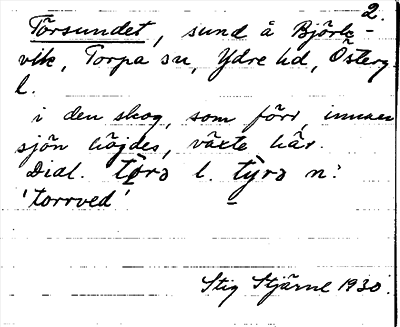 2.
Törsundet, sund å Björk-
vik, Torpa sn, Ydre hd, Österg.
l.
i den skog, som förr, innan
sjön höjdes, växte här.
Dial. törə l. tyrə n:
'torrved'
Stig Stjärne 1930.